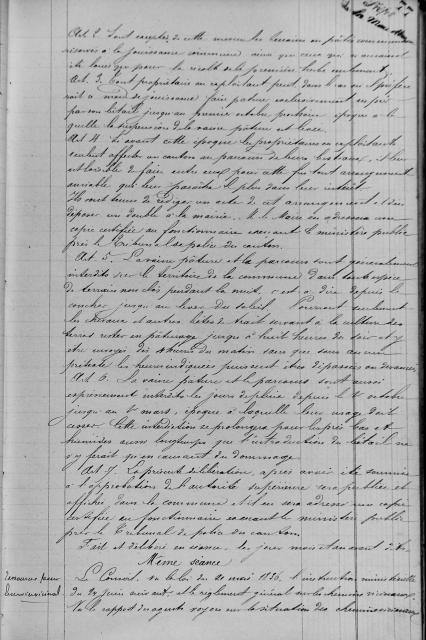 77
Art. 2. Sont exceptés de cette mesure les terrains en prés communaux
réservés à la jouissance commune ainsi que ceux qui
été loués que pour la récolte de la première herbe seulement.
Art. 3. tout propriétaire ou exploitant peut, dans le cas où il préfère
mode de jouissance faire pâturer exclusivement ses prés
par son bétail jusqu'au premier octobre prochain époque à la
quelle la suspension de la vaine pâture est levée
Art. 4. Si avant cette époque les propriétaires ou exploitants
veulent affecter un canton au parcours de leurs bestiaux, il leur
est loisible de faire entre eux pour cette fin tout arrangement
amiable qui leur paraîtra le plus dans leur intérêt
Ils sont tenus de rédiger un acte de cet arrangement et d'en
déposer un double à la mairie. M. le Maire en adressera une
copie certifiée au fonctionnaire exerçant le ministère public
près le Tribunal de police du canton.
Art. 5. La vaine pâture et le parcours sont généralement
interdits sur le territoire de la commune dans toute espèce
de terrain non clos pendant la nuit, c'est à dire depuis le
coucher jusqu'au lever du soleil. Pourront seulement
les chevaux et autres bêtes de trait servant à la culture des
terres rester en pâturage jusqu'à huit heures du soir et y
être envoyés dès heures du matin sans que sous aucun
prétexte les heures indiquées puissent être dépassées ou devancées
Art. 6. La vaine pâture et le parcours sont aussi
expressément interdits les jours de pluie depuis le 1er octobre
jusqu'au 1er mars, époque à laquelle leur usage doit
cesser. Cette interdiction se prolongera pour les prés bas et
humides aussi longtemps que l'introduction du bétail ne
s'y ferait qu'en causant du dommage.
Art. 7. La présente délibération, après avoir été soumise
à l'approbation de l'autorité supérieure sera publiée et
affichée dans la commune et il en sera adressé une copie
certifiée au fonctionnaire exerçant le ministère public
près le Tribunal de police du canton.
Fait et délibéré en séance, les jour mois et an avant dits.
Même séance
Le Conseil, vu la loi du 21 mai 1836, l'instruction ministérielle
du 24 juin suivant, et le règlement général sur les chemins vicinaux
Vu le rapport des agents voyers sur la situation des chemins vicinaux